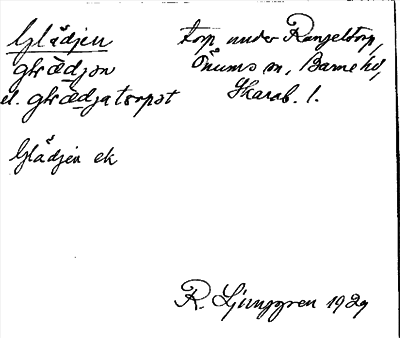 Glädjen torp under Rangeltorp,
glædjən Önums sn, Barne hd,
el. glædjatorpət Skarab. l.
Glädjen ek
R. Ljunggren 1929